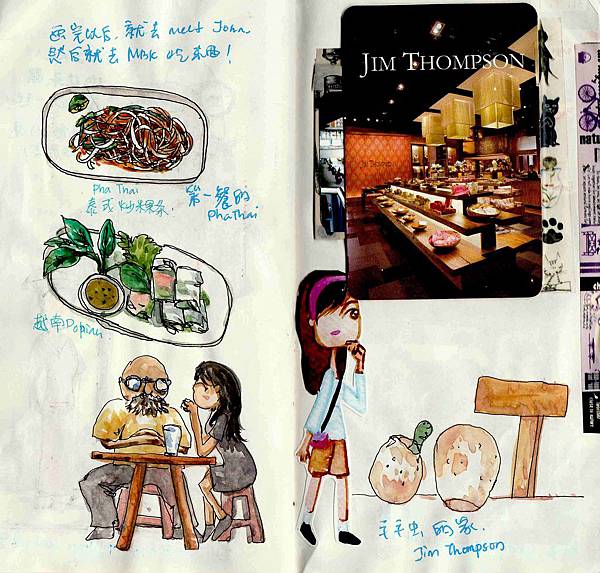 画完以后，就去 meet John
然后就去 MBK 吃东西！
Pha Thai
泰式炒粿条.
第一餐的
Pha Thai
越南Dopiah.
JIM THOMPSON
JIM THOMPSON
毛毛虫的家.
Jim Thompson